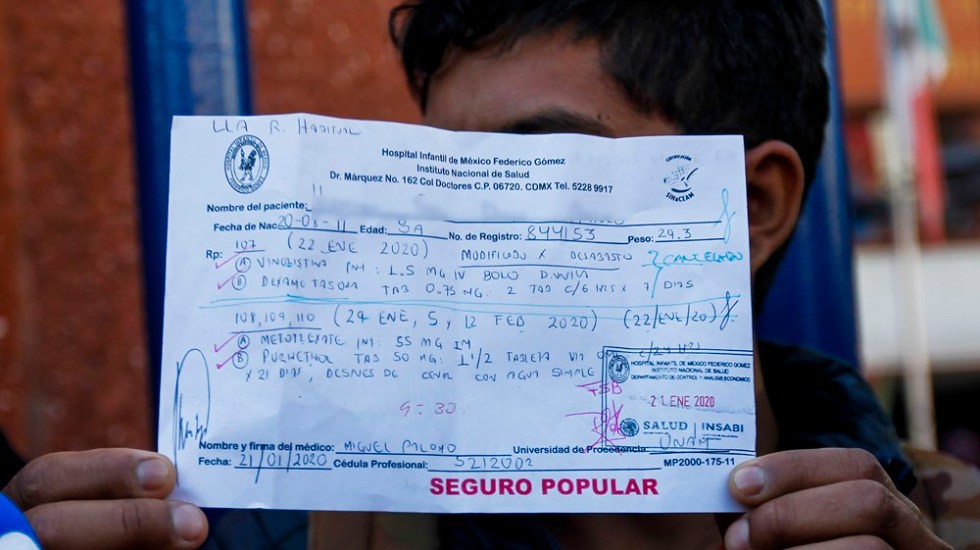 LLA R. HABITUAL
Hospital Infantil de México Federico Gómez
Instituto Nacional de Salud
Dr. Márquez No. 162 Col Doctores C.P. 06720. CDMX Tel. 5228 9917
CERTIFICACIÓN
SiNaCEAM
Nombre del paciente:
Fecha de Nac 20-08-11 Edad: 8A No. de Registro: 844153 Peso: 29.3
Rp: 107 (22 ENE 2020) MODIFICADO X DESABASTO CANCELADO
A VINCRISTINA INY: 1.5 MG IV BOLO D. UNICA
B DEXAMETASONA TAB 0.75 MG: 2 TAB C/6 HRS X 7 DIAS
108, 109, 110 (29 ENE, 5 y 12 FEB 2020) (22/ENE/20)
A METOTREXATE INY: 55 MG IM
B PURINETHOL TAB 50 MG: 1 1/2 TABLETA VIA C/24 H
X 21 DIAS, DESPUES DE CENAR CON AGUA SIMPLE
HOSPITAL INFANTIL DE MÉXICO FEDERICO GÓMEZ
INSTITUTO NACIONAL DE SALUD
DEPARTAMENTO DE CONTROL Y ANALISIS ECONÓMICO
21 ENE 2020
9:30
SALUD INSABI
Nombre y firma del médico: MIGUEL PALOMO Universidad de Procedencia: UNAM
Fecha: 21/01/2020 Cédula Profesional: 5212002 MP2000-175-11
SEGURO POPULAR